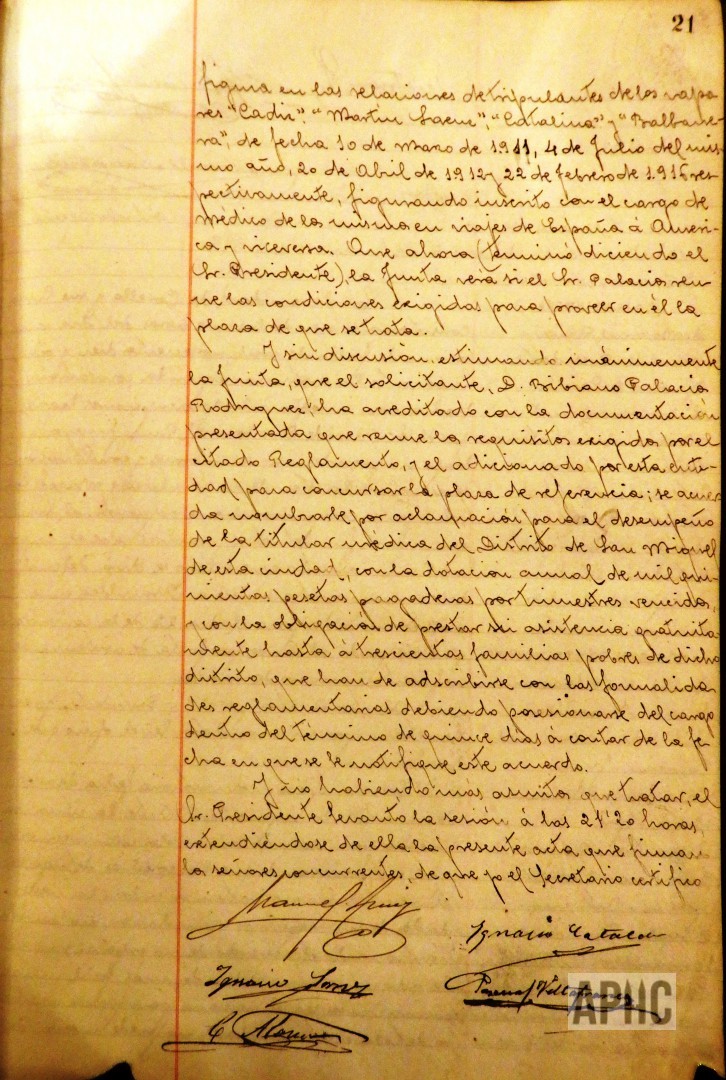 21
figura en las relaciones de tripulantes de los vapo-
res "Cadiz", "Martin Saenz", "Catalina" y "Balbane-
ra", de fecha 10 de Marzo de 1911, 4 de Julio del mis-
mo año, 20 de Abril de 1912 y 22 de Febrero de 1.915 res-
pectivamente, figurando inscrito con el cargo de
Médico de los mismos en viajes de España á Ameri-
ca y viceversa. Que ahora (terminó diciendo el
Sr. Presidente), la Junta verá si el Sr. Palacios reu-
ne las condiciones exigidas para proveer en él la
plaza de que se trata.
Y sin discusión, estimando unánimemente
la Junta, que el solicitante, D. Bibiano Palacios
Rodriguez, ha acreditado con la documentación
presentada que reune los requisitos exigidos por el
citado Reglamento, y el adicionado por esta enti-
dad para concursar la plaza de referencia; se acuer-
da nombrarle por aclamación para el desempeño
de la titular médica del Distrito de San Miguel
de esta ciudad, con la dotacion anual de mil qui-
nientas pesetas pagaderas por trimestres vencidos,
y con la obligación de prestar su asistencia gratuita-
mente hasta á trescientas familias pobres de dicho
distrito, que han de adscribirse con las formalida-
des reglamentarias debiendo posesionarse del cargo
dentro del término de quince dias á contar de la fe-
cha en que se le notifique este acuerdo.
Y no habiendo mas asuntos que tratar, el
Sr. Presidente levantó la sesión á las 21'20 horas,
extendiéndose de ella la presente acta que firman
los señores concurrentes, de que yo el Secretario certifico
Manuel Ruiz
Ignacio Catalan
Ignacio
APHC